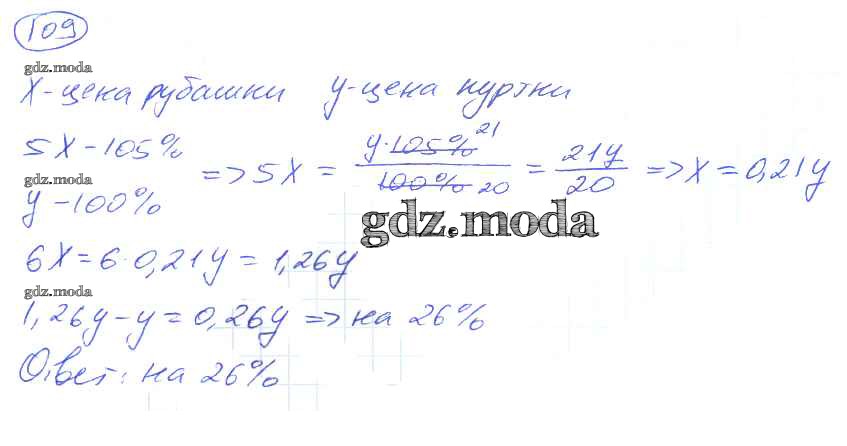 109
gdz.moda
X-цена рубашки у-цена куртки
5X - 105%
gdz.moda
y - 100%
=> 5X = y·105% 21 / 100% 20 = 21y / 20 => X = 0,21y
gdz.moda
6X = 6·0,21y = 1,26y
gdz.moda
1,26y - y = 0,26y => на 26%
Ответ: на 26%